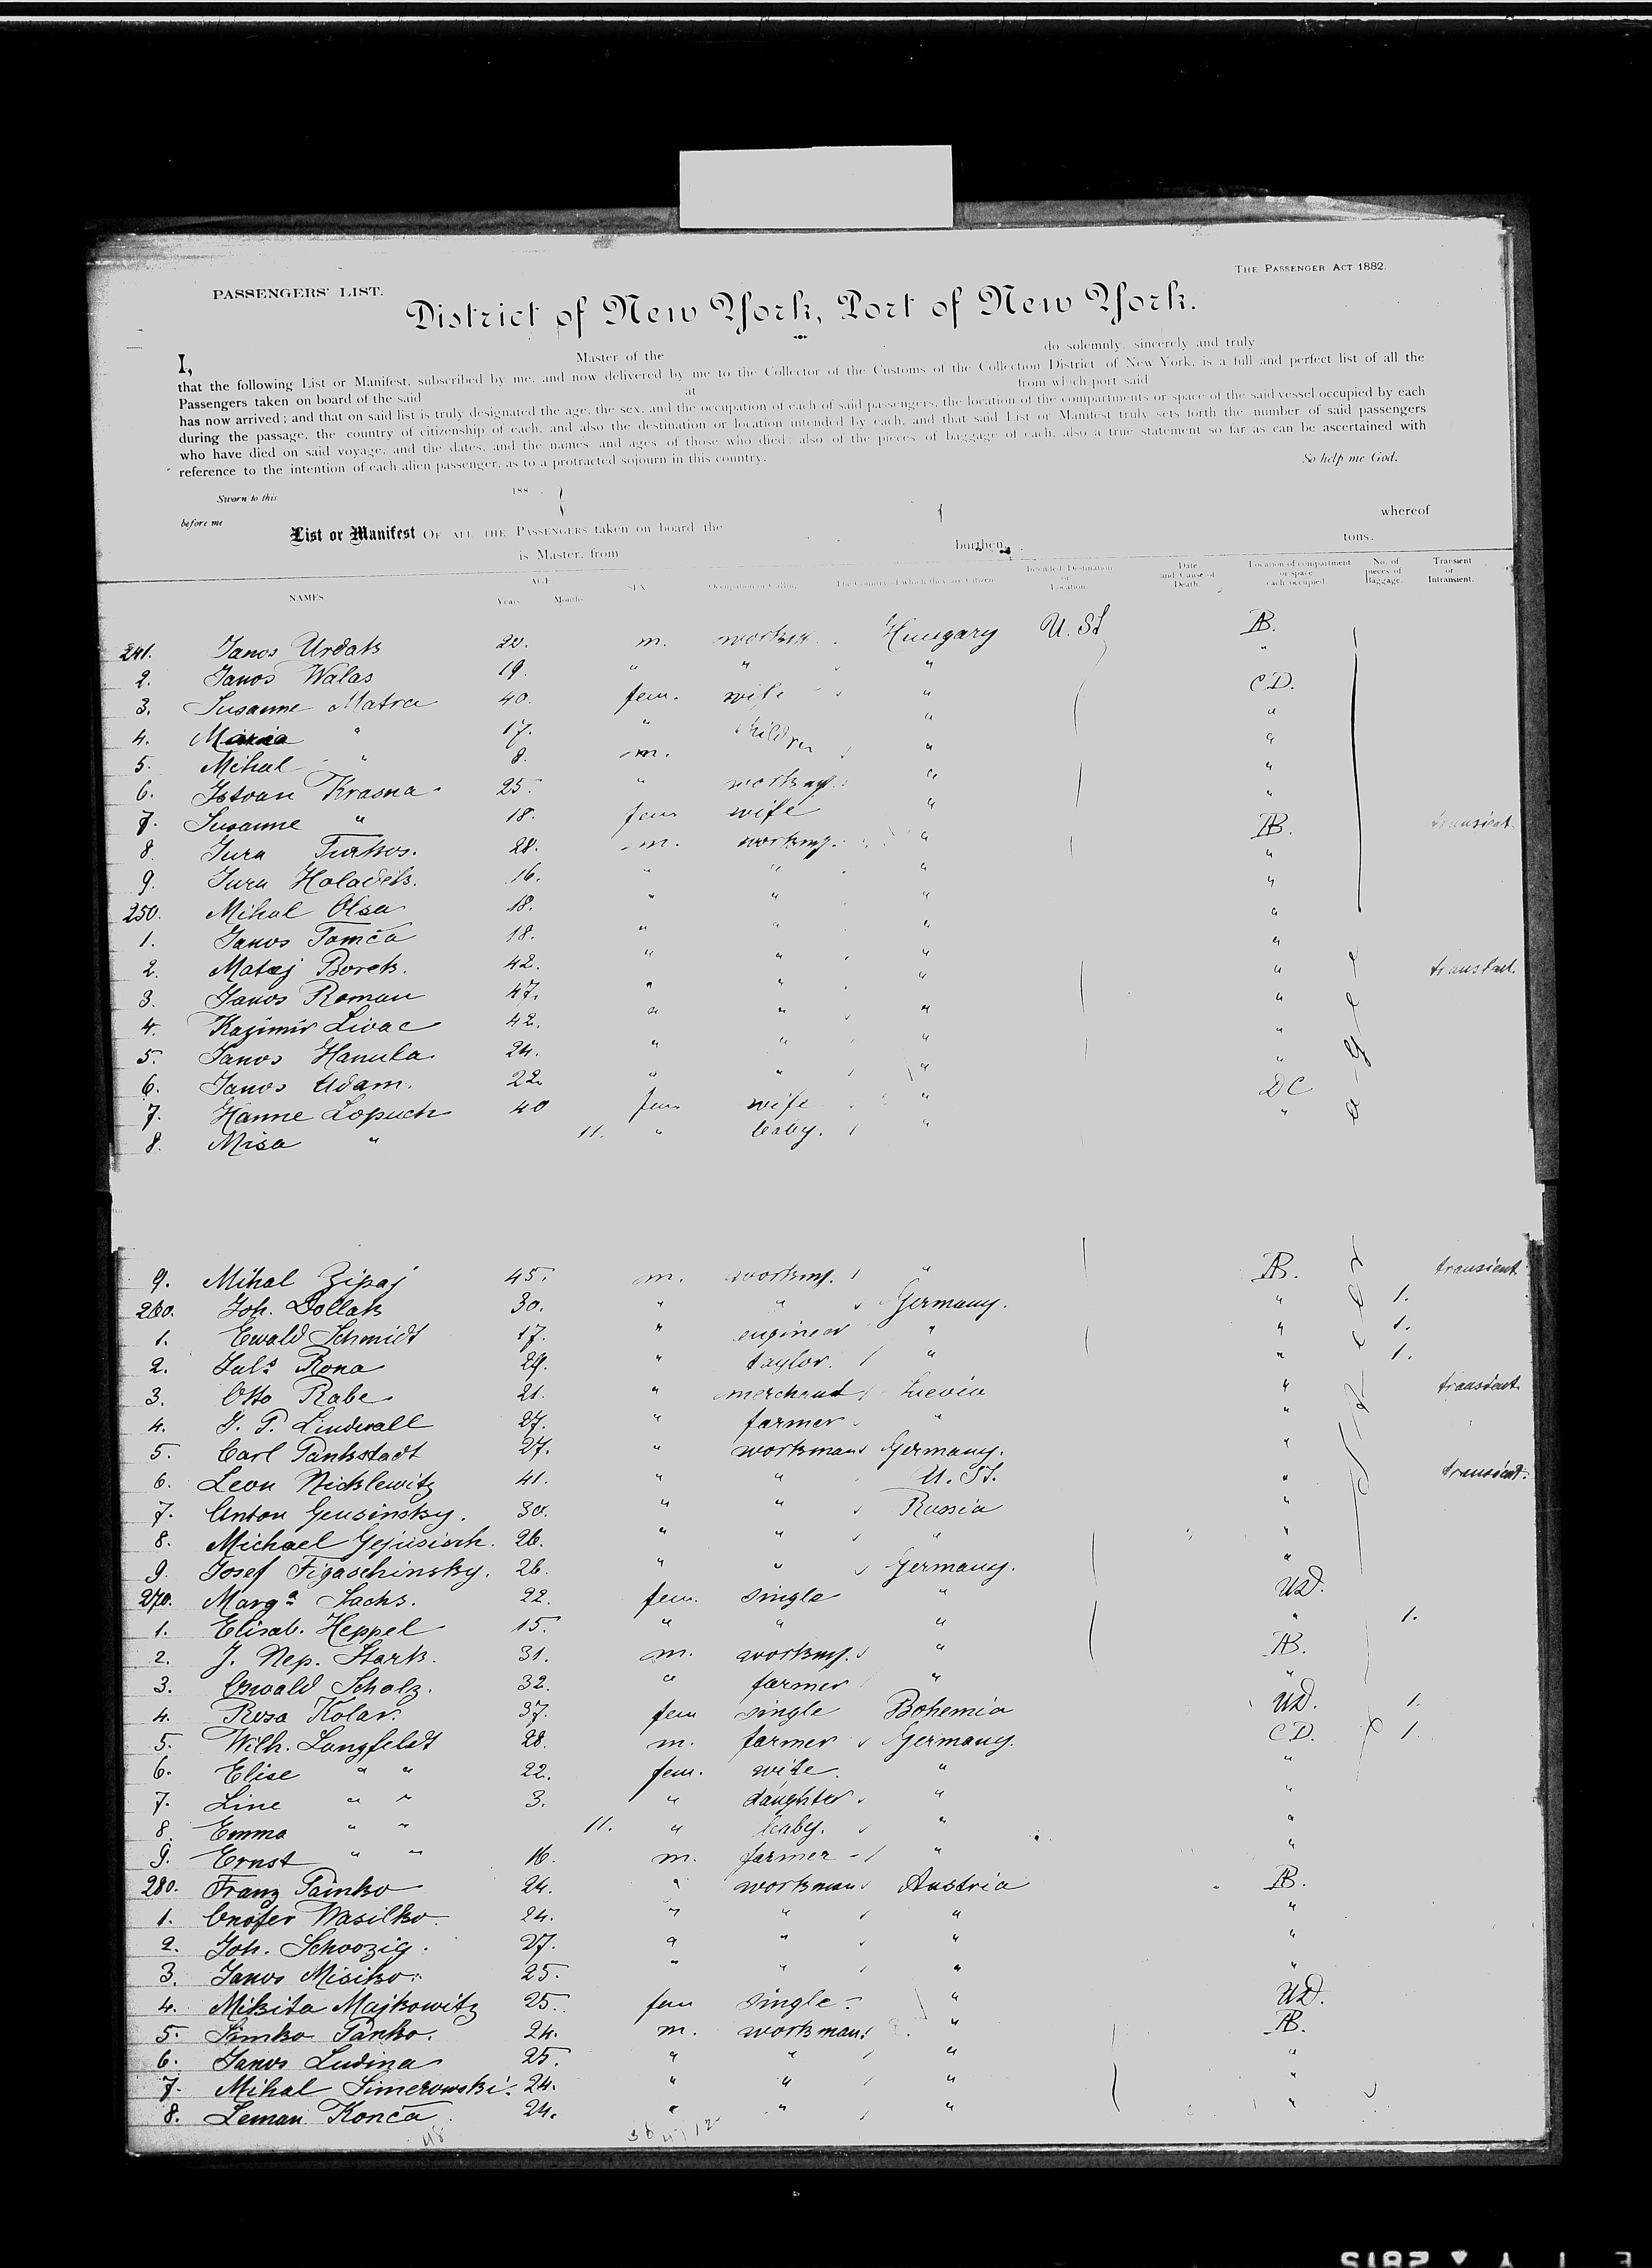 THE PASSENGER ACT 1882.
PASSENGERS' LIST.
District of New York, Port of New York.
I, Master of the do solemnly, sincerely and truly
that the following List or Manifest, subscribed by me, and now delivered by me to the Collector of the Customs of the Collection District of New York, is a full and perfect list of all the
Passengers taken on board of the said at from which port said
has now arrived; and that on said list is truly designated the age, the sex, and the occupation of each of said passengers, the location of the compartments or space of the said vessel occupied by each
during the passage, the country of citizenship of each, and also the destination or location intended by each, and that said List or Manifest truly sets forth the number of said passengers
who have died on said voyage, and the dates, and the names and ages of those who died; also of the pieces of baggage of each, also a true statement so far as can be ascertained with
reference to the intention of each alien passenger, as to a protracted sojourn in this country. So help me God.
Sworn to this 188
before me whereof
List or Manifest OF ALL THE PASSENGERS taken on board the
is Master, from burthen tons.
NAMES AGE Years Months SEX Occupation or Calling The Country of which they are Citizens Intended Destination or Location. Date and Cause of Death. Location of compartment or space each occupied. No. of pieces of Baggage. Transient or Intransient.
241. Janos Urdak 22. m. Hungary U. St AB.
2. Janos Walas 19. " " " "
3. Susanne Matra 40. fem. wife " C.D.
4. Maria " 17. " children " "
5. Mihal " 8. m. " "
6. Istvan Krasna 25. " workmg. " "
7. Susanne " 18. fem wife " "
8. Jura Turkos. 28. m. workmg. " AB. transient.
9. Jura Holadek. 16. " " " "
250. Mihal Olsa 18. " " " "
1. Janos Tomča 18. " " " "
2. Mataj Borek. 42. " " " "
3. Janos Roman 47. " " " " transient.
4. Kazimir Livac 42. " " " "
5. Janos Hanula 24. " " " "
6. Janos Adam. 22. " " " "
7. Hanne Lopuch 40 fem wife " DC
8. Misa " 11. " baby. " "
9. Mihal Zipaj 45. m. workmg. " AB. transient
260. Joh. Dollak 30. " " Germany. " 1.
1. Ewald Schmidt 17. " engineer " " 1.
2. Juls. Rona 29. " taylor. " " 1.
3. Otto Rabe 21. " merchant " transient
4. J. P. Lindwall 27. " farmer " "
5. Carl Pankstadt 27. " workman Germany. "
6. Leon Nicklewitz 41. " " U. St. " transient.
7. Anton Gensinsky. 30. " " Russia "
8. Michael Gejusisch. 26. " " " "
9. Josef Figaschinsky. 26. " " Germany. "
270. Marga Sachs. 22. fem. single " UD.
1. Elisab. Heppel 15. " " " " 1.
2. J. Nep. Stark. 31. m. workmg. " AB.
3. Oswald Scholz. 32. " farmer " "
4. Rosa Kolar. 37. fem single Bohemia UD. 1.
5. Wilh. Langfeldt 28. m. farmer Germany. C.D. 1.
6. Elise " " 22. fem. wife. " "
7. Line " " 3. " daughter " "
8. Emma " " 11. " baby. " "
9. Ernst " " 16. m. farmer " "
280. Franz Pamko 24. " workman Austria AB.
1. Onofer Wasilko 24. " " " "
2. Joh. Schoozig. 27. " " " "
3. Janos Misiko 25. " " " "
4. Mikita Majkowitz 25. fem single " UD.
5. Simko Panko. 24. m. workman " AB.
6. Janos Ludina 25. " " " "
7. Mihal Simerowski. 24. " " " "
8. Leman Konča 24. " " " "
48